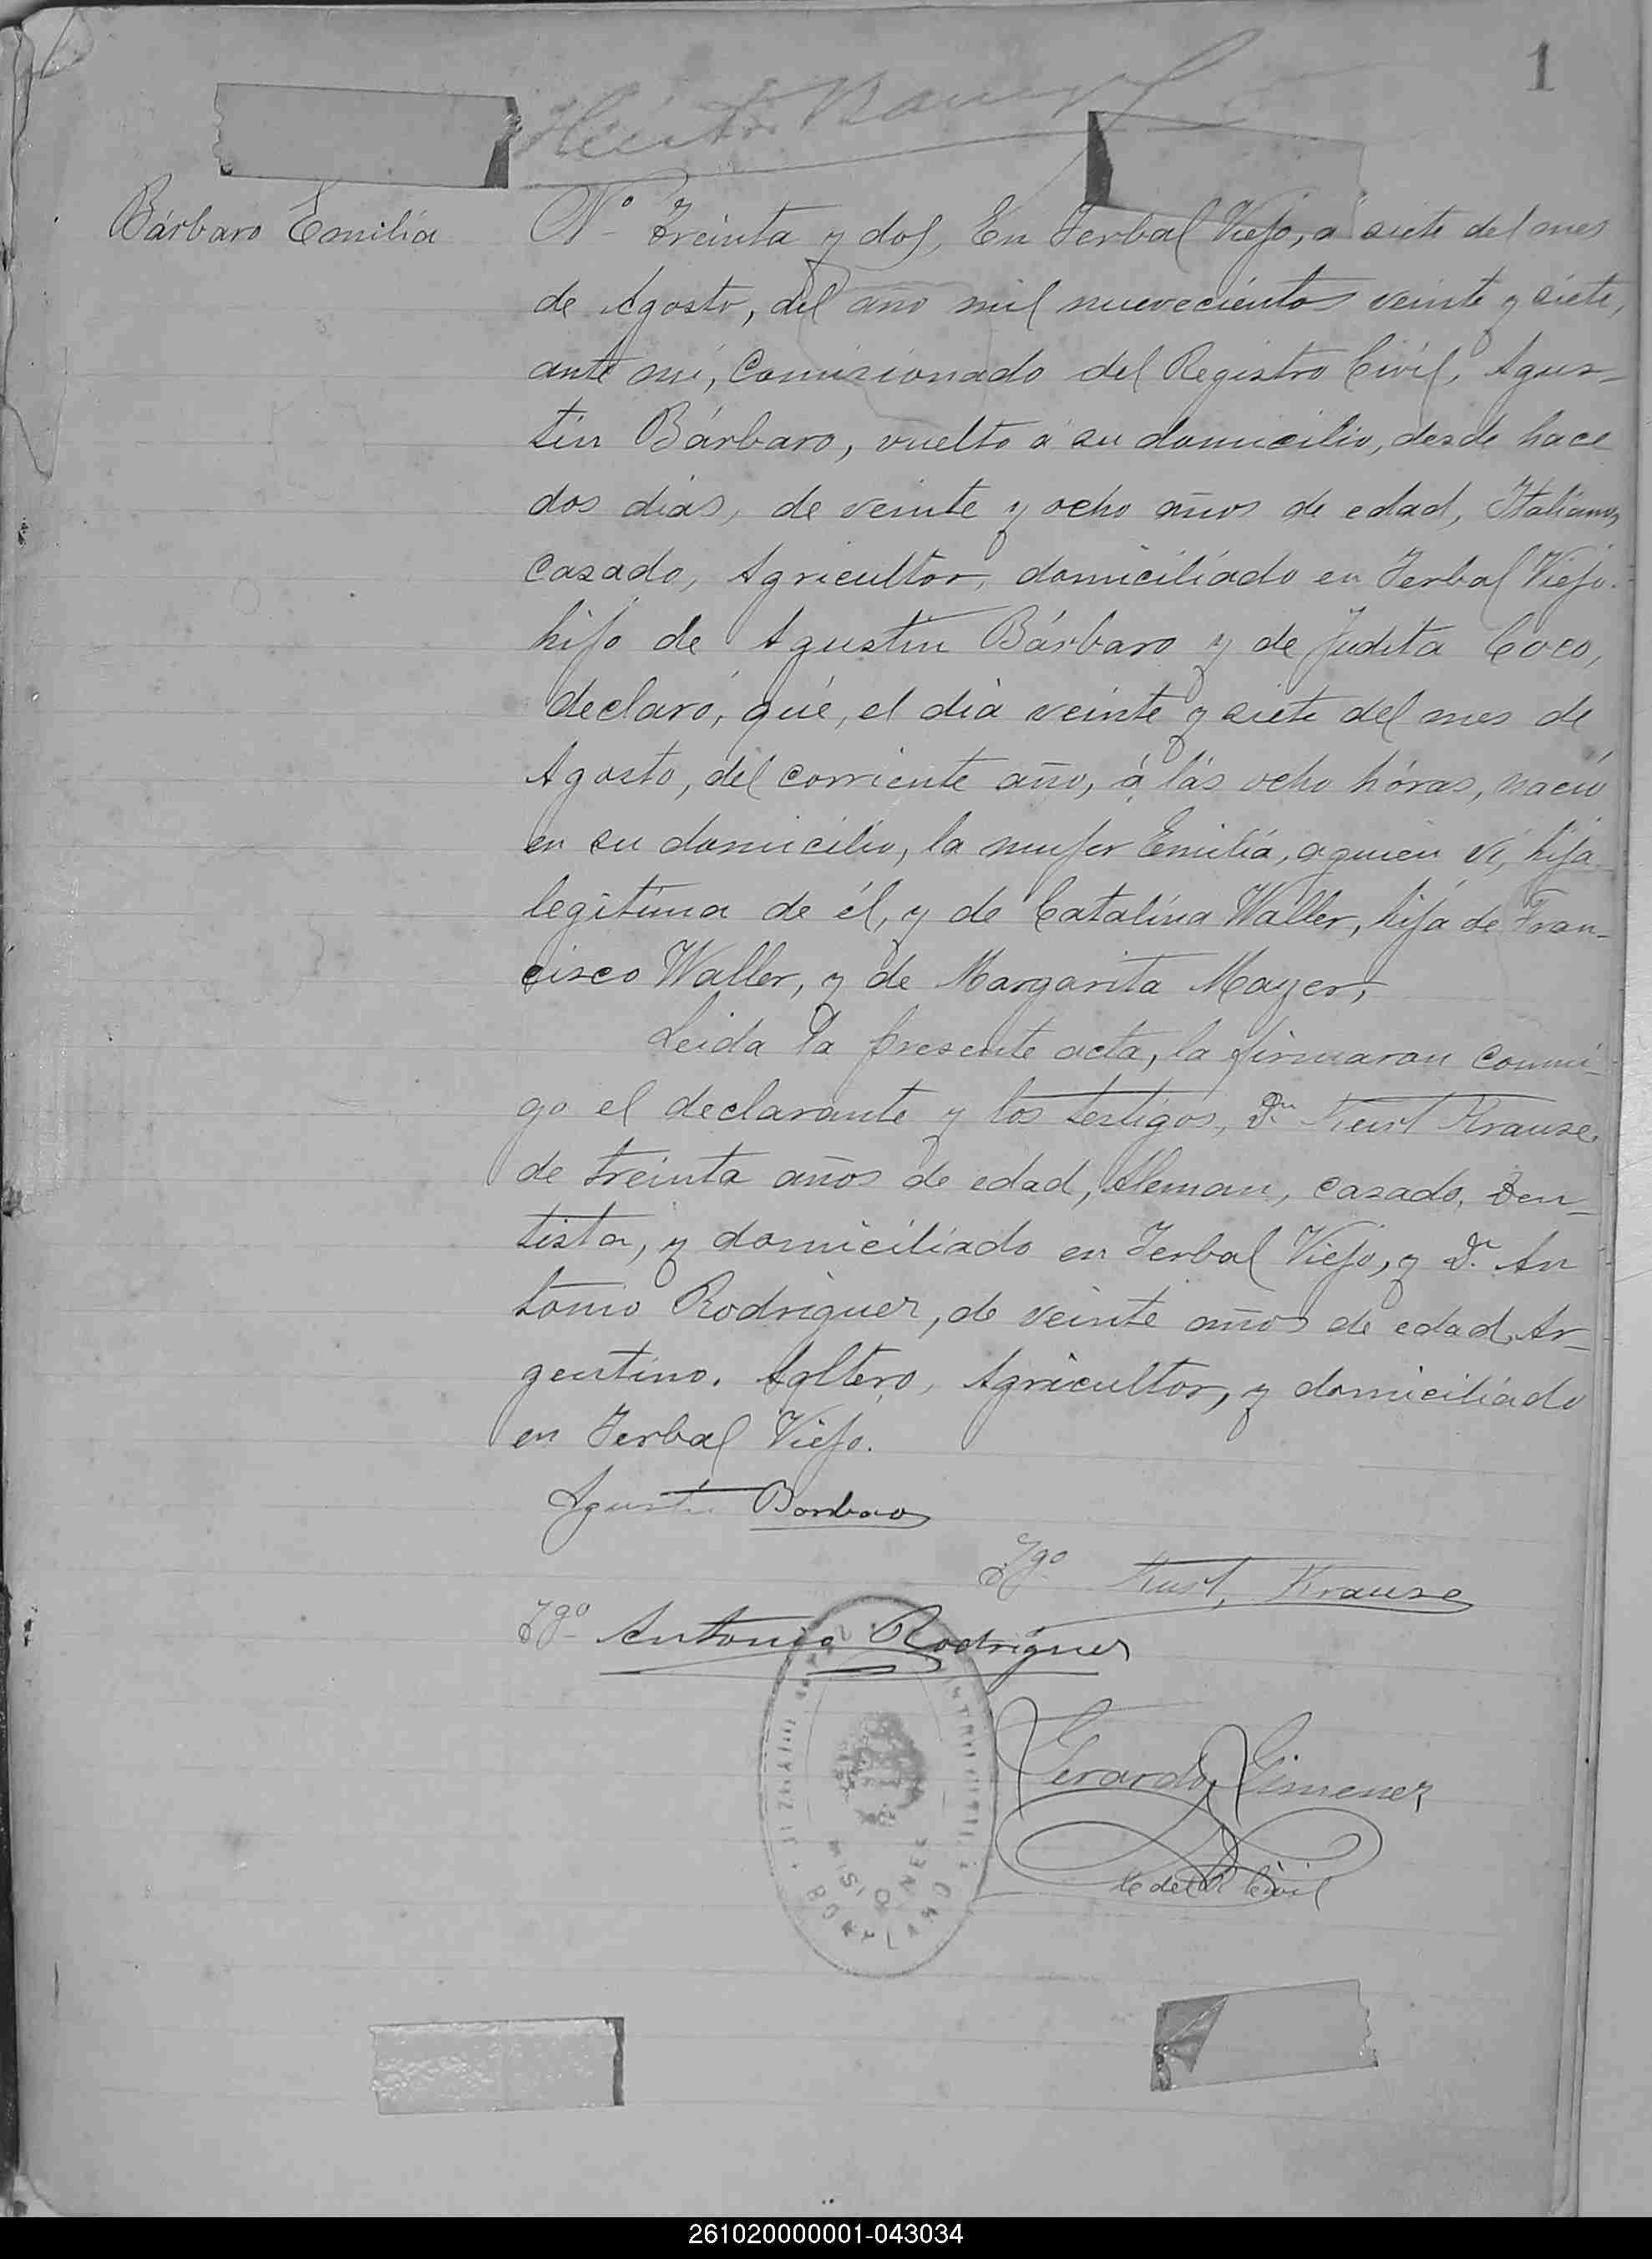 1
Bárbaro Emilia
Nº Treinta y dos, En Yerbal Viejo, a siete del mes
de Agosto, del año mil nuevecientos veinte y siete,
ante mi, Comisionado del Registro Civil, Agus-
tin Bárbaro, vuelto á su domicilio, desde hace
dos dias, de veinte y ocho años de edad, Italiano,
casado, Agricultor, domiciliado en Yerbal Viejo.
hijo de Agustin Bárbaro y de Judita Coco,
declaró, qué, el dia veinte y siete del mes de
Agosto, del corriente año, á las ocho hóras, nació
en su domicilio, la mujer Emilia, a quien vi, hija
legitima de él, y de Catalina Waller, hija de Fran-
cisco Waller, y de Margarita Mayer,
Leida la presente acta, la firmaran conmi-
go el declarante y los testigos, Dn Kurt Krause
de treinta años de edad, Aleman, casado, Den-
tista, y domiciliado en Yerbal Viejo, y Dn. An
tonio Rodriguez, de veinte años de edad, Ar-
gentino. Soltero, Agricultor, y domiciliado
en Yerbal Viejo.
Agustin Barbaro
Tgo Kurt, Krause
Tgo Antonio Rodriguez
Gerardo Gimenez
C del R Civil
MISIONES
BOMPLAND
261020000001-043034